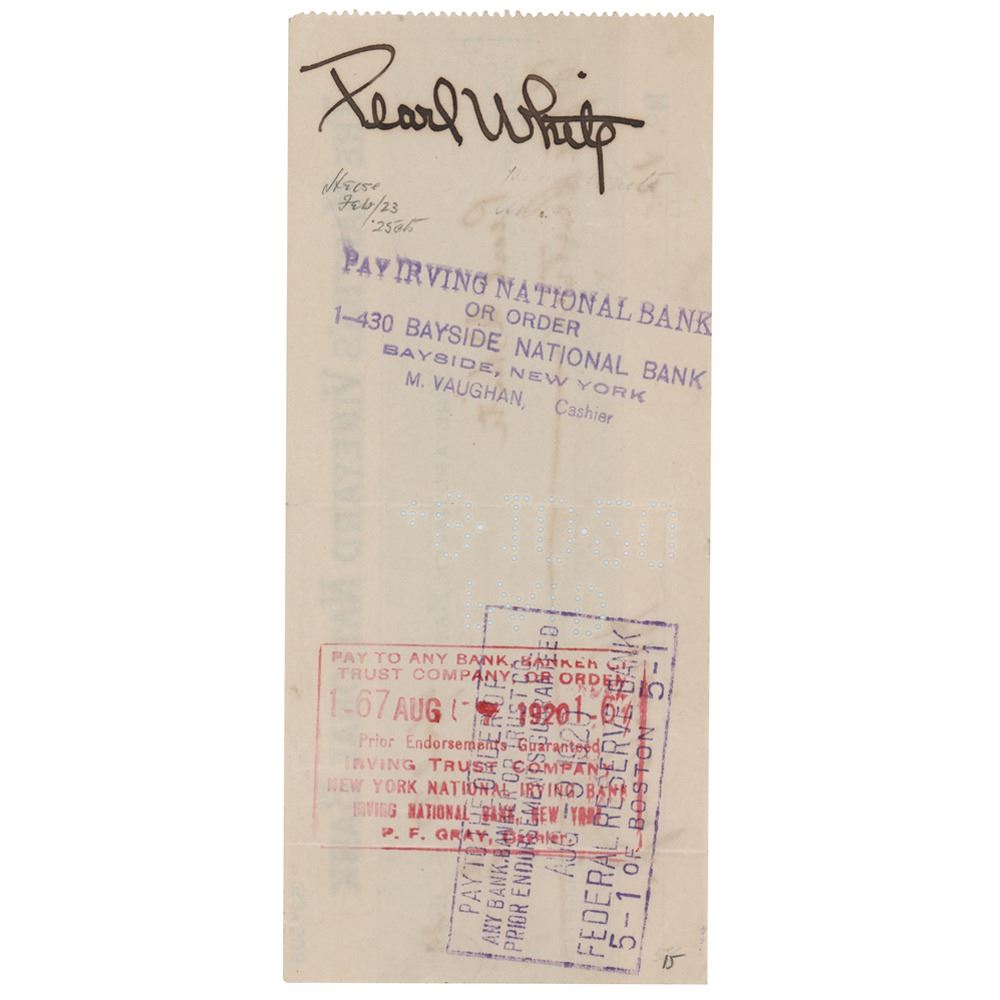 Pearl White
Feb/23
PAY IRVING NATIONAL BANK
OR ORDER
1-430 BAYSIDE NATIONAL BANK
BAYSIDE, NEW YORK
M. VAUGHAN, Cashier
PAY TO ANY BANK, BANKER OR
TRUST COMPANY, OR ORDER
1-67 AUG 7 1920 1-67
Prior Endorsements Guaranteed
IRVING TRUST COMPANY
NEW YORK NATIONAL IRVING BANK
IRVING NATIONAL BANK, NEW YORK
P. F. GRAY, Cashier
PAY TO THE ORDER OF
ANY BANK, BANKER OR TRUST CO.
PRIOR ENDORSEMENTS GUARANTEED
AUG -9 1920
FEDERAL RESERVE BANK
5-1 OF BOSTON 5-1
15